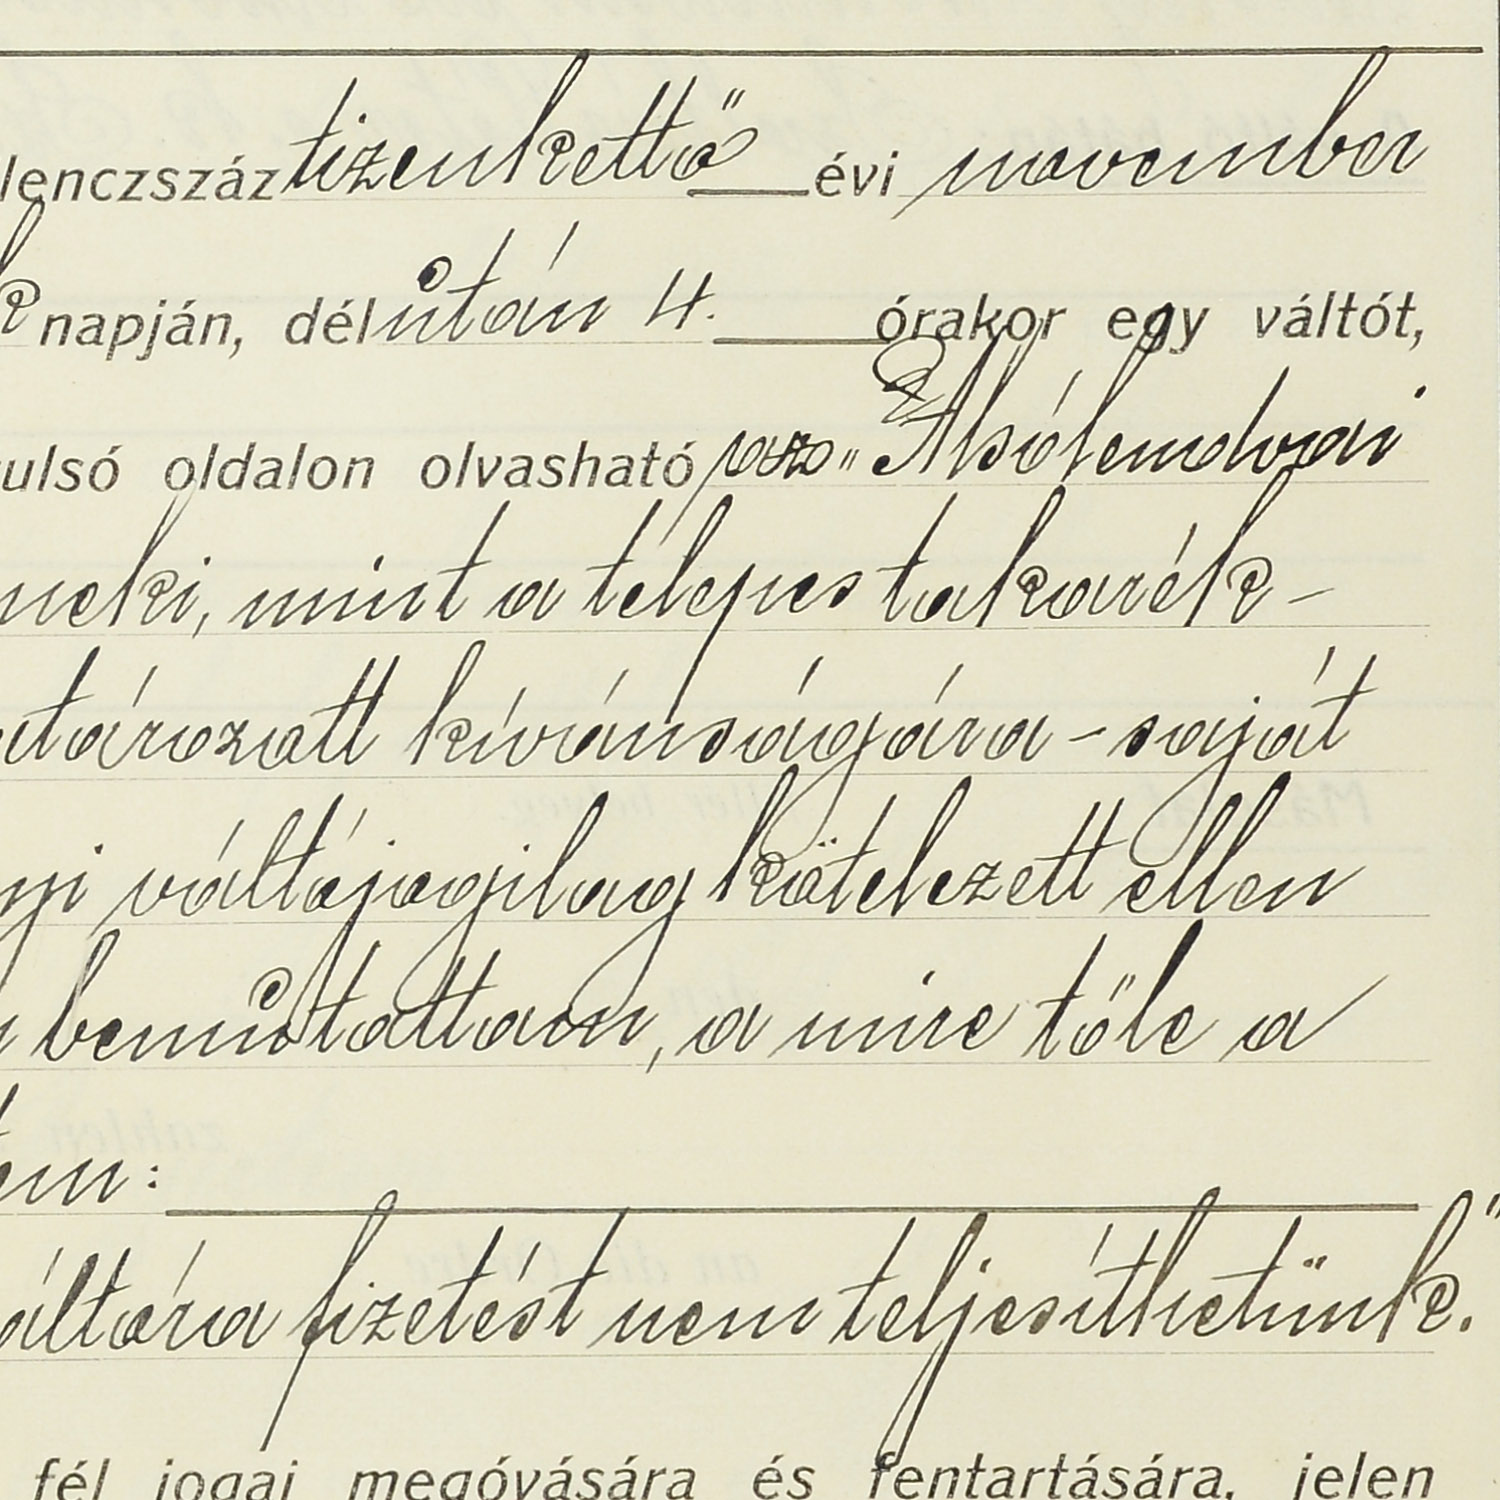 lenczszáz tizenkettő évi november
napján, délután 4. órakor egy váltót,
ulsó oldalon olvasható „Alsólendvai
neki, mint a telepes takarék-
határozott kívánságára - saját
váltójogilag kötelezett ellen
bemutattam, a mire tőle a
em:
váltóra fizetést nem teljesíthetünk."
fél jogai megóvására és fentartására, jelen